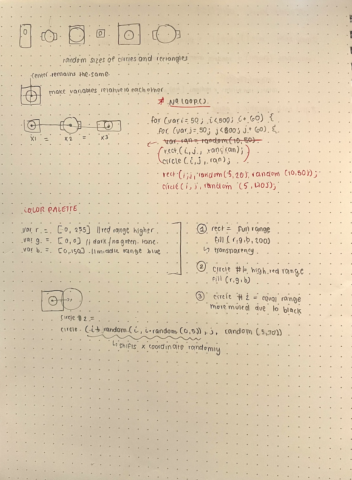 random sizes of circles and rectangles
center remains the same
make variables relative to each other
* NO LOOP()
x1 = x2 = x3
for (var i = 50; i < 800; i + 60) {
for (var j = 50; j < 800; j + 60) {
var ran = random (10, 50)
rect (i, j, ran, ran);
circle (i, j, ran);
rect (i, j, random (5, 20), random (10, 50));
circle (i, j, random (5, 40));
COLOR PALETTE
var r = [0, 255] // red range higher
var g = [0, 0] // dark / no green
var b = [0, 150] // blue
① rect = full range
fill (r, g, b, 200)
↳ transparency
② circle #1, high red range
fill (r, g, b)
③ circle #2 = range
more due to black
circle #2 =
circle (i + random (i, i + random (0, 5)), j, random (5, 20))
↳ shifts x coordinate randomly